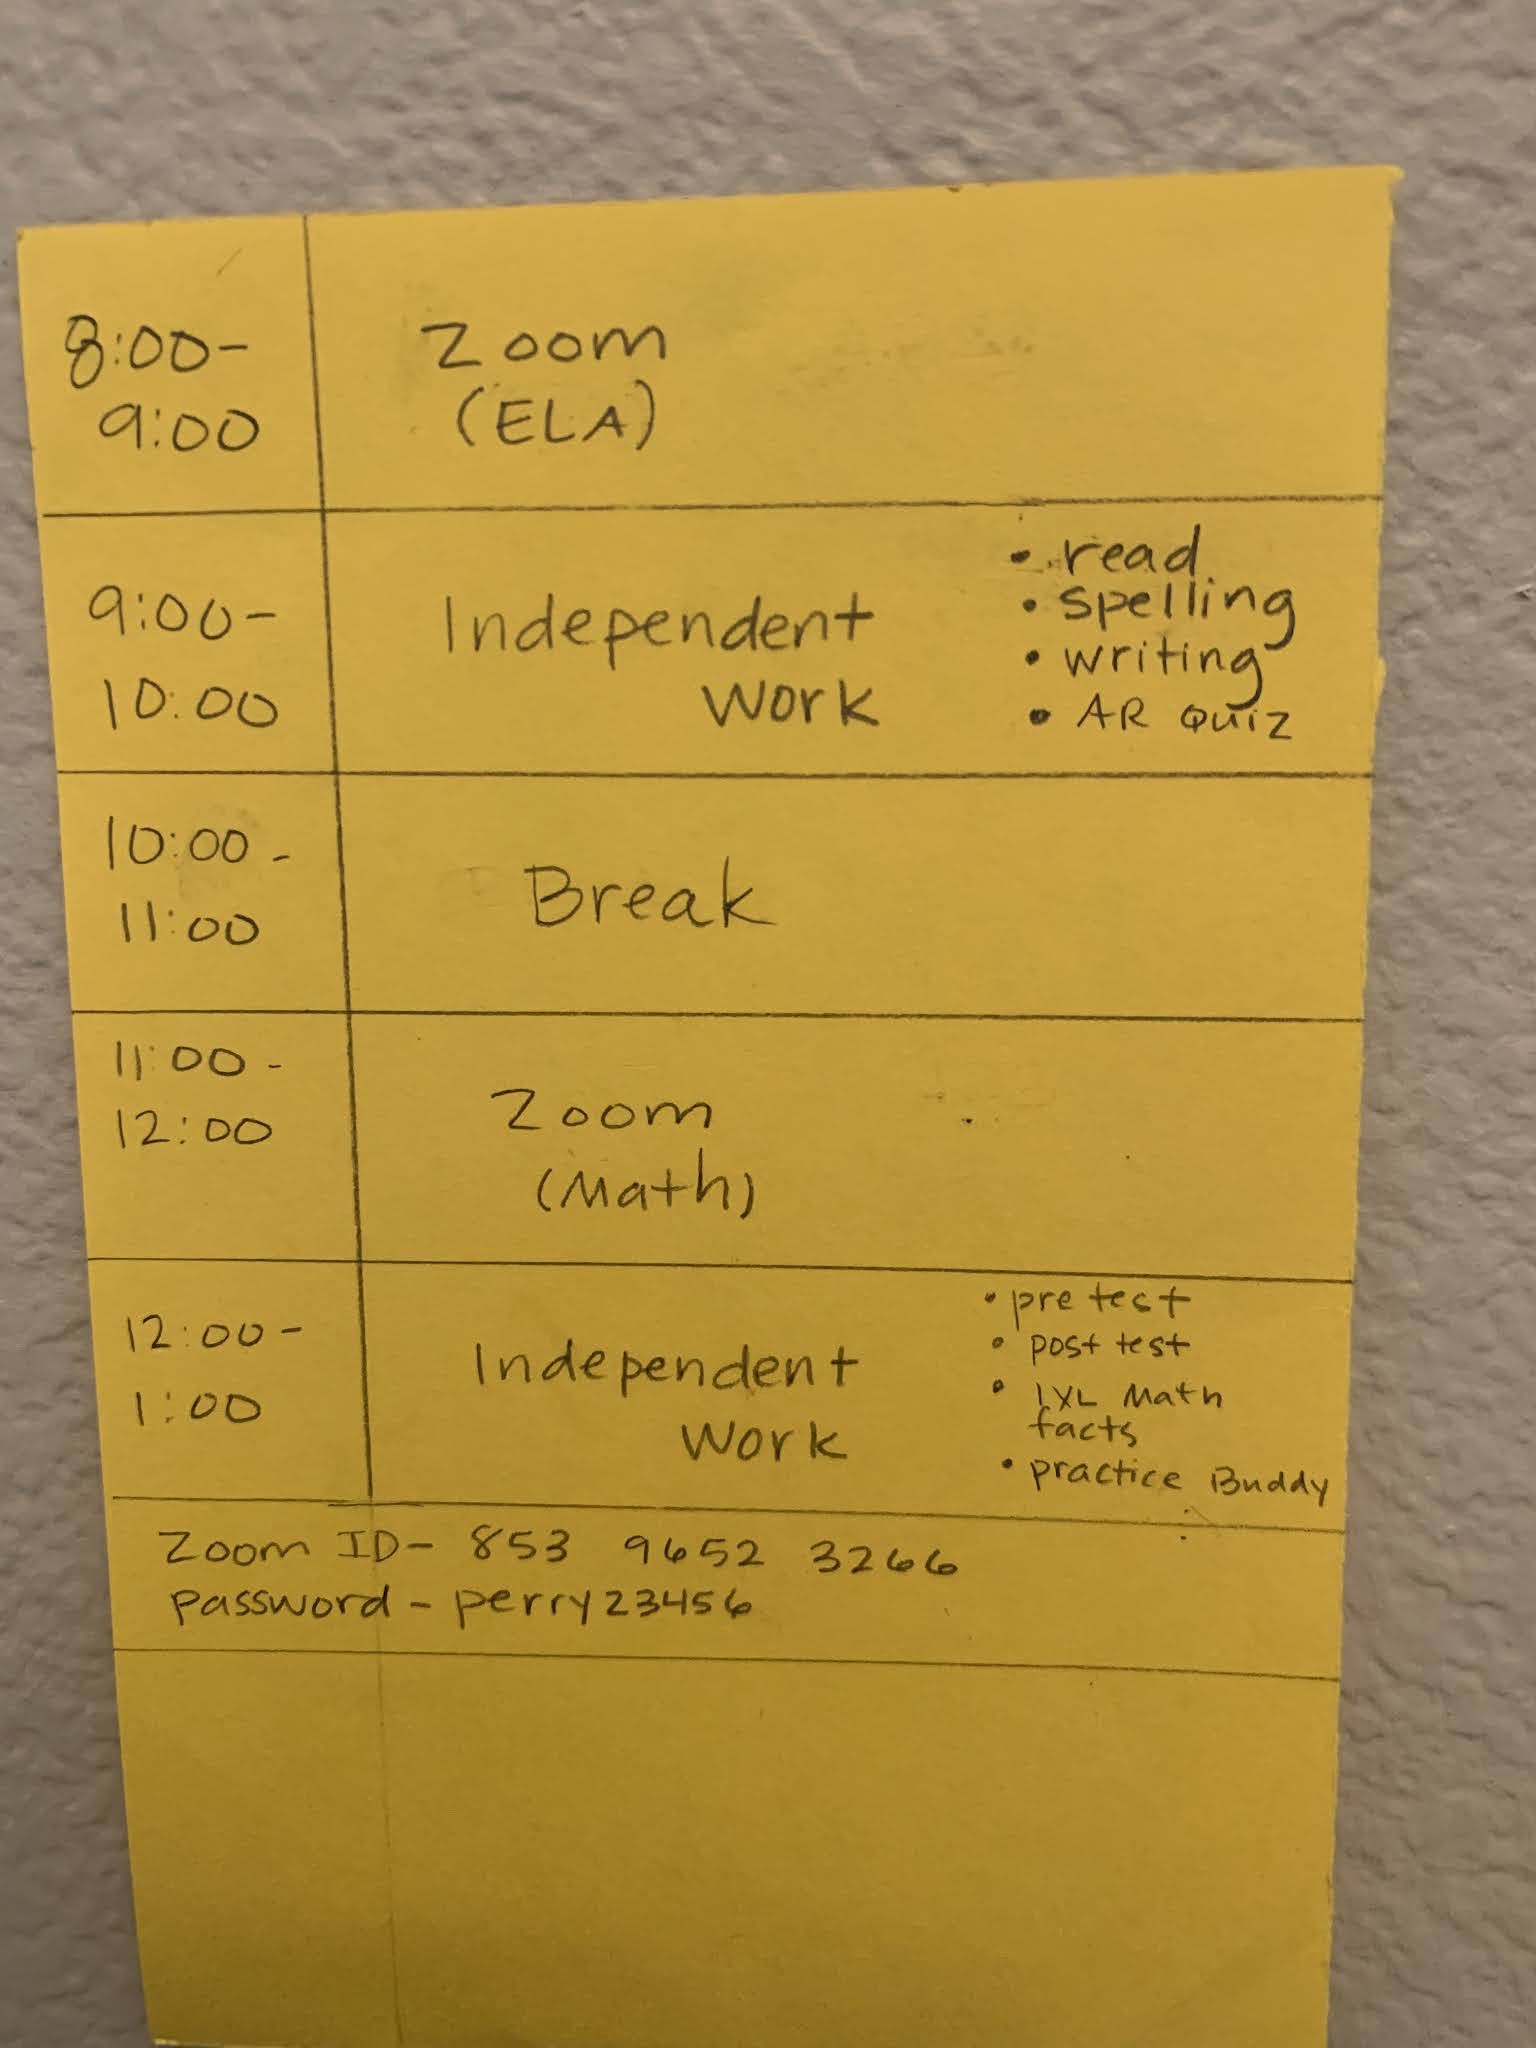 8:00-
9:00
Zoom
(ELA)
9:00-
10:00
Independent
Work
• read
• spelling
• writing
• AR Quiz
10:00-
11:00
Break
11:00-
12:00
Zoom
(Math)
12:00-
1:00
Independent
Work
• pre test
• post test
• IXL Math
facts
• practice Buddy
Zoom ID- 853 9652 3266
password- perry23456